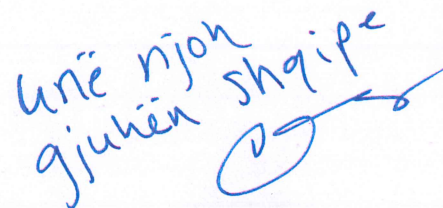 unë njoh
gjuhën shqipe